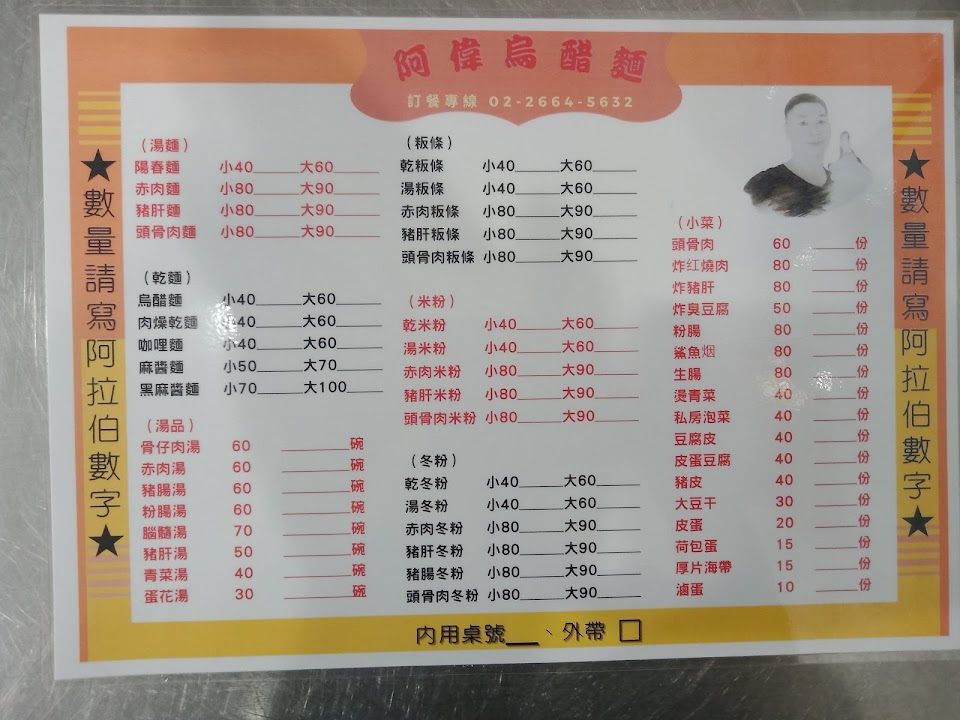 阿偉烏醋麵
訂餐專線 02-2664-5632
★數量請寫阿拉伯數字★
（湯麵）
陽春麵 小40_____大60_____
赤肉麵 小80_____大90_____
豬肝麵 小80_____大90_____
頭骨肉麵 小80_____大90_____
（乾麵）
烏醋麵 小40_____大60_____
肉燥乾麵 小40_____大60_____
咖哩麵 小40_____大60_____
麻醬麵 小50_____大70_____
黑麻醬麵 小70_____大100_____
（湯品）
骨仔肉湯 60 _____碗
赤肉湯 60 _____碗
豬腸湯 60 _____碗
粉腸湯 60 _____碗
腦髓湯 70 _____碗
豬肝湯 50 _____碗
青菜湯 40 _____碗
蛋花湯 30 _____碗
（粄條）
乾粄條 小40_____大60_____
湯粄條 小40_____大60_____
赤肉粄條 小80_____大90_____
豬肝粄條 小80_____大90_____
頭骨肉粄條 小80_____大90_____
（米粉）
乾米粉 小40_____大60_____
湯米粉 小40_____大60_____
赤肉米粉 小80_____大90_____
豬肝米粉 小80_____大90_____
頭骨肉米粉 小80_____大90_____
（冬粉）
乾冬粉 小40_____大60_____
湯冬粉 小40_____大60_____
赤肉冬粉 小80_____大90_____
豬肝冬粉 小80_____大90_____
豬腸冬粉 小80_____大90_____
頭骨肉冬粉 小80_____大90_____
（小菜）
頭骨肉 60 _____份
炸红燒肉 80 _____份
炸豬肝 80 _____份
炸臭豆腐 50 _____份
粉腸 80 _____份
鯊魚烟 80 _____份
生腸 80 _____份
燙青菜 40 _____份
私房泡菜 40 _____份
豆腐皮 40 _____份
皮蛋豆腐 40 _____份
豬皮 40 _____份
大豆干 30 _____份
皮蛋 20 _____份
荷包蛋 15 _____份
厚片海帶 15 _____份
滷蛋 10 _____份
★數量請寫阿拉伯數字★
內用桌號___、外帶 □